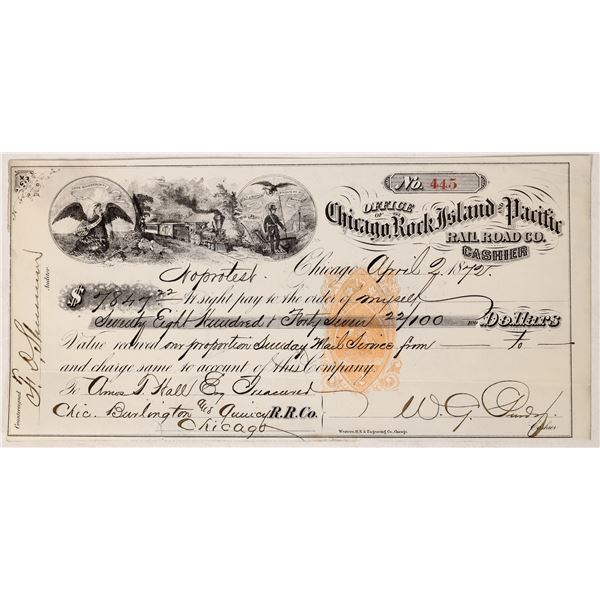 No. 445
OFFICE
OF
Chicago, Rock Island AND Pacific
RAIL ROAD CO.
CASHIER
No protest. Chicago April 2, 1872.
$7847 22 At sight pay to the order of myself
Seventy Eight Hundred & Forty Seven 22/100 Dollars
Value received our proportion Sunday Mail Service from to
and charge same to account of this Company.
To Amos T. Hall Esq Treasurer
Chic. Burlington and Quincy R.R. Co.
Chicago
W. G.
Cashier
Western B.N. & Engraving Co., Chicago.
Countersigned
Auditor